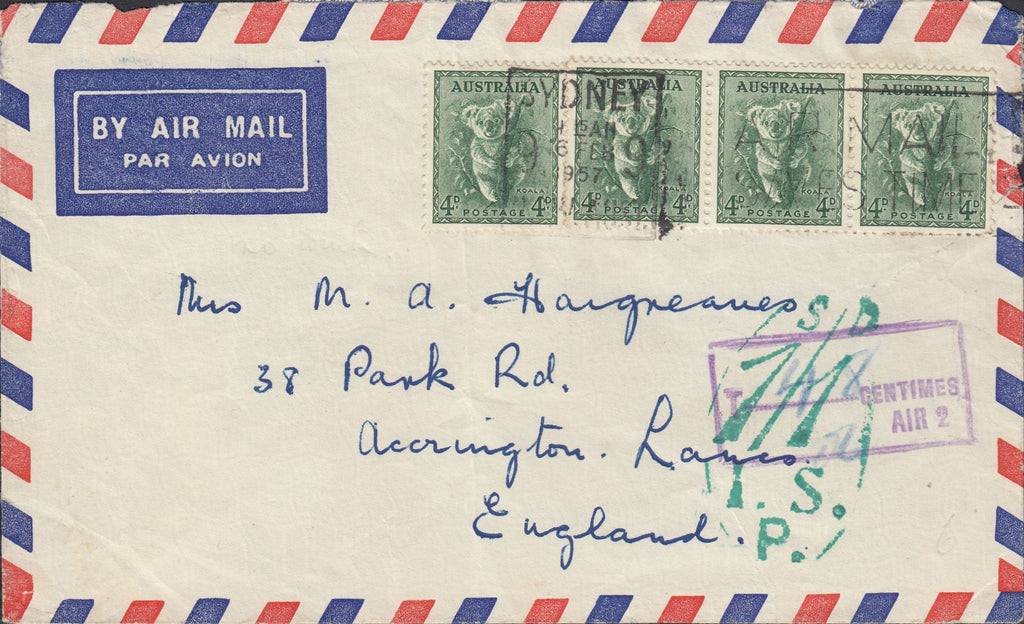 BY AIR MAIL
PAR AVION
AUSTRALIA AUSTRALIA AUSTRALIA AUSTRALIA
KOALA KOALA KOALA KOALA
4D POSTAGE 4D 4D POSTAGE 4D 4D POSTAGE 4D 4D POSTAGE 4D
SYDNEY
FEB
1957
AIR MAIL
SAVES TIME
Mrs M. A. Hargreaves
38 Park Rd.
Accrington. Lancs.
England.
S D
T CENTIMES
AIR 2
I.S.
P.